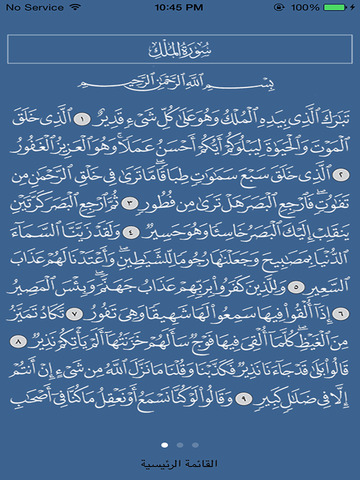 No Service 10:45 PM 100%
سُورَةُ المُلْكِ
بِسْمِ اللَّهِ الرَّحْمَٰنِ الرَّحِيمِ
تَبَٰرَكَ الَّذِى بِيَدِهِ الْمُلْكُ وَهُوَ عَلَىٰ كُلِّ شَىْءٍ قَدِيرٌ ١ الَّذِى خَلَقَ
الْمَوْتَ وَالْحَيَوٰةَ لِيَبْلُوَكُمْ أَيُّكُمْ أَحْسَنُ عَمَلًا وَهُوَ الْعَزِيزُ الْغَفُورُ
٢ الَّذِى خَلَقَ سَبْعَ سَمَٰوَٰتٍ طِبَاقًا مَّا تَرَىٰ فِى خَلْقِ الرَّحْمَٰنِ مِن
تَفَٰوُتٍ فَارْجِعِ الْبَصَرَ هَلْ تَرَىٰ مِن فُطُورٍ ٣ ثُمَّ ارْجِعِ الْبَصَرَ كَرَّتَيْنِ
يَنقَلِبْ إِلَيْكَ الْبَصَرُ خَاسِئًا وَهُوَ حَسِيرٌ ٤ وَلَقَدْ زَيَّنَّا السَّمَاءَ
الدُّنْيَا بِمَصَٰبِيحَ وَجَعَلْنَٰهَا رُجُومًا لِّلشَّيَٰطِينِ وَأَعْتَدْنَا لَهُمْ عَذَابَ
السَّعِيرِ ٥ وَلِلَّذِينَ كَفَرُوا بِرَبِّهِمْ عَذَابُ جَهَنَّمَ وَبِئْسَ الْمَصِيرُ
٦ إِذَا أُلْقُوا فِيهَا سَمِعُوا لَهَا شَهِيقًا وَهِىَ تَفُورُ ٧ تَكَادُ تَمَيَّزُ
مِنَ الْغَيْظِ كُلَّمَا أُلْقِىَ فِيهَا فَوْجٌ سَأَلَهُمْ خَزَنَتُهَا أَلَمْ يَأْتِكُمْ نَذِيرٌ ٨
قَالُوا بَلَىٰ قَدْ جَاءَنَا نَذِيرٌ فَكَذَّبْنَا وَقُلْنَا مَا نَزَّلَ اللَّهُ مِن شَىْءٍ إِنْ أَنتُمْ
إِلَّا فِى ضَلَٰلٍ كَبِيرٍ ٩ وَقَالُوا لَوْ كُنَّا نَسْمَعُ أَوْ نَعْقِلُ مَا كُنَّا فِى أَصْحَٰبِ
القائمة الرئيسية